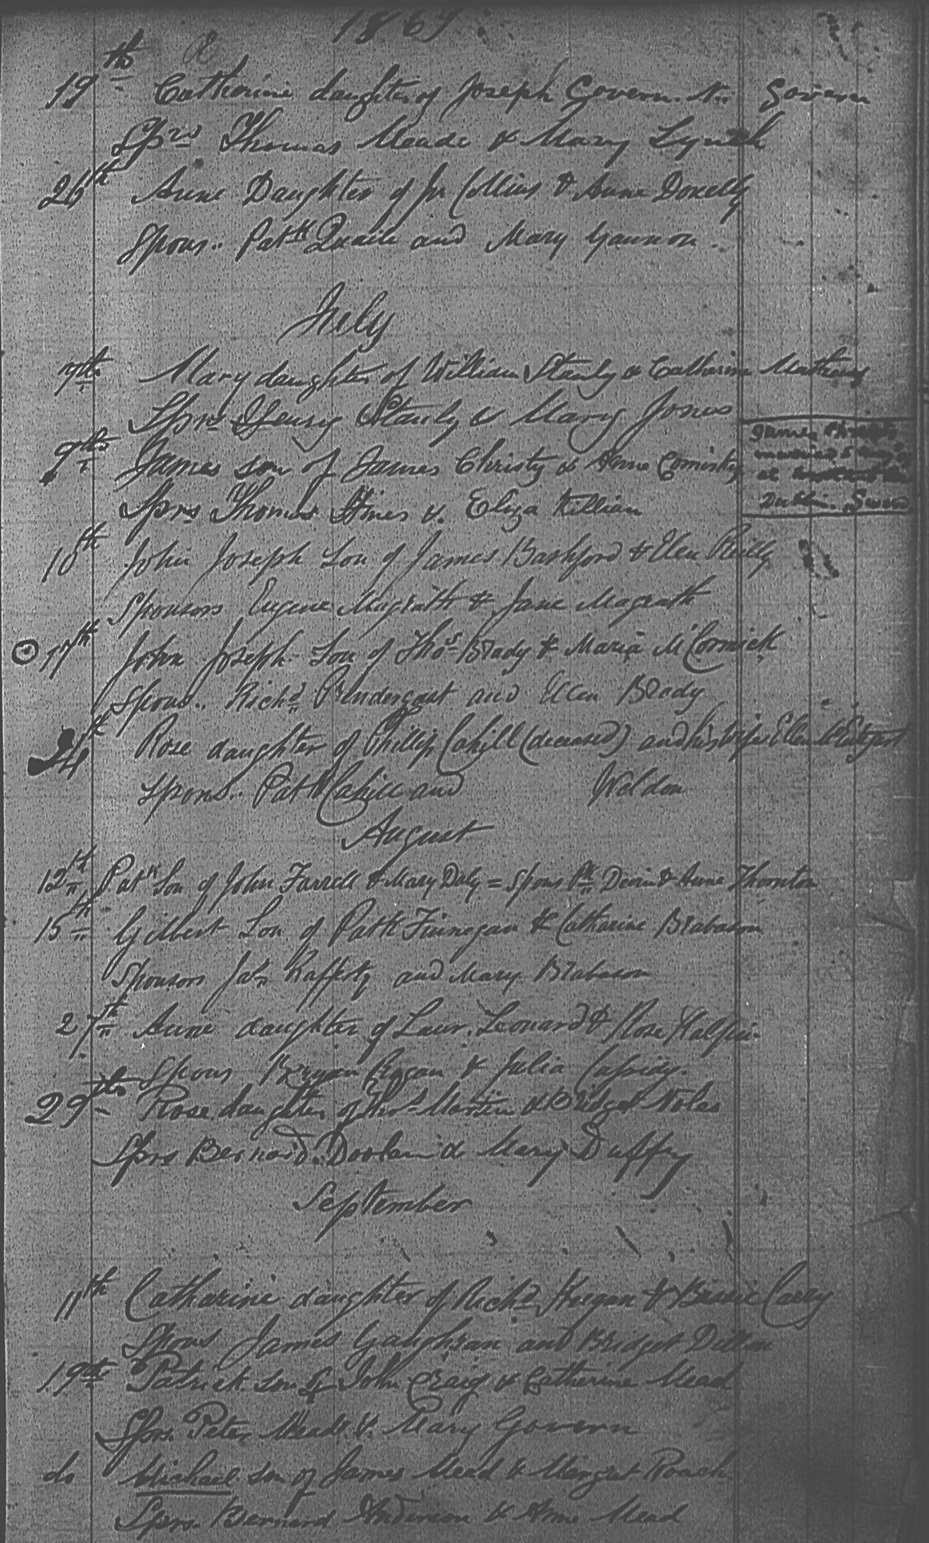 1869
19th Catherine daughter of Joseph Govern Govern
Sprs Thomas Meade & Mary Lynch
26th Anne Daughter of Jn Collins & Anne Donelly
Spons.. Patk Quaile and Mary Gannon
July
7th Mary daughter of William Stanly & Catherine Mathews
Sprs Henry Stanly & Mary Jones
9th James son of James Christy & Anne Comisky
Sprs Thomas Hines & Eliza Killian
James
Dublin.
10th John Joseph Son of James Bashford & Elen Reilly
Sponsors Eugene Magrath & Jane Magrath
17th John Joseph Son of Thos Brady & Maria McCormick
Spons.. Richd Prendergast and Elen Brady
24th Rose daughter of Phillip Cahill (deceased) and his wife
Spons.. Patk Cahill and Weldon
August
12th Patk Son of John Farrell & Mary Daly = Spons Pk & Anne Thornton
15th Gilbert Son of Patk Finnegan & Catharine Brabason
Sponsors Jas Rafferty and Mary Brabason
27th Anne daughter of Laur. Leonard & Rose Halfpin
Spons Bryan Rogan & Julia Cassidy.
29th Rose daughter of Thos Martin & Bridget Nolan
Sprs Bernard Doolan & Mary Duffy
September
11th Catharine daughter of Richd Keegan & Bessie Carry
Spons James Gaughran and Bridget Dillon
19th Patrick son of John Craig & Catherine Mead
Sprs. Peter Mead & Mary Govern
do Michael son of James Mead & Margret Roach
Sprs. Bernard Anderson & Anne Mead